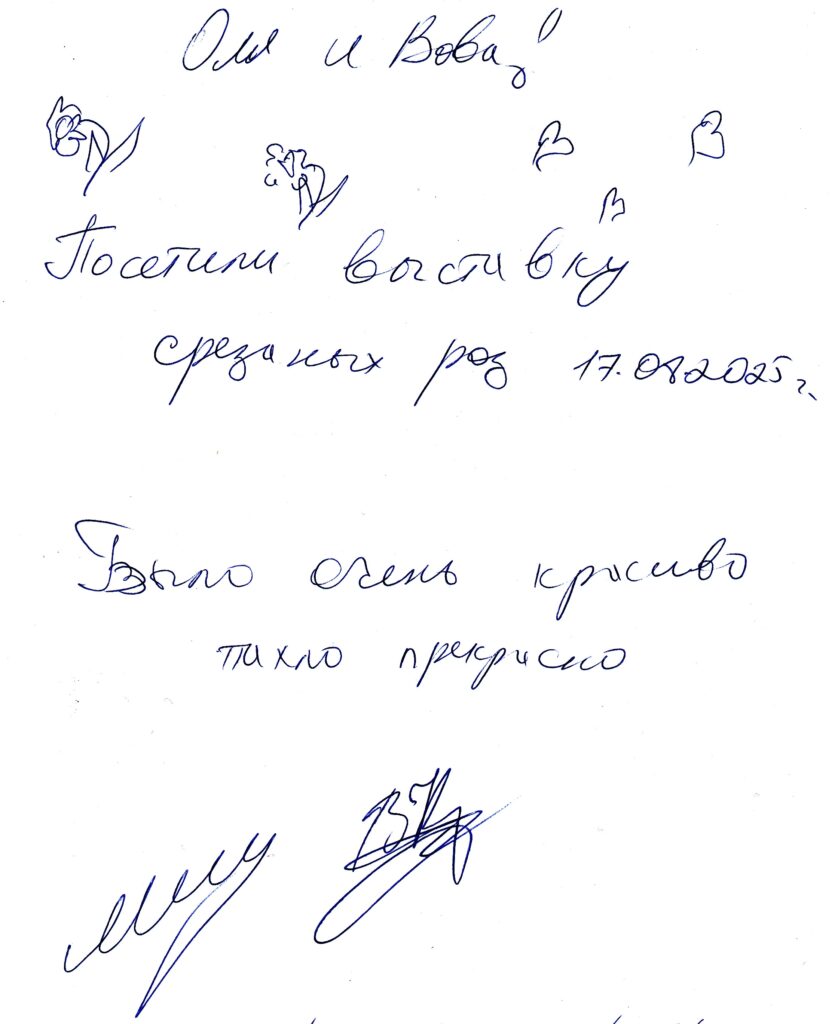 Оля и Вова!
Посетили выставку
срезаных роз 17.08.2025 г.
Было очень красиво
пахло прекрасно